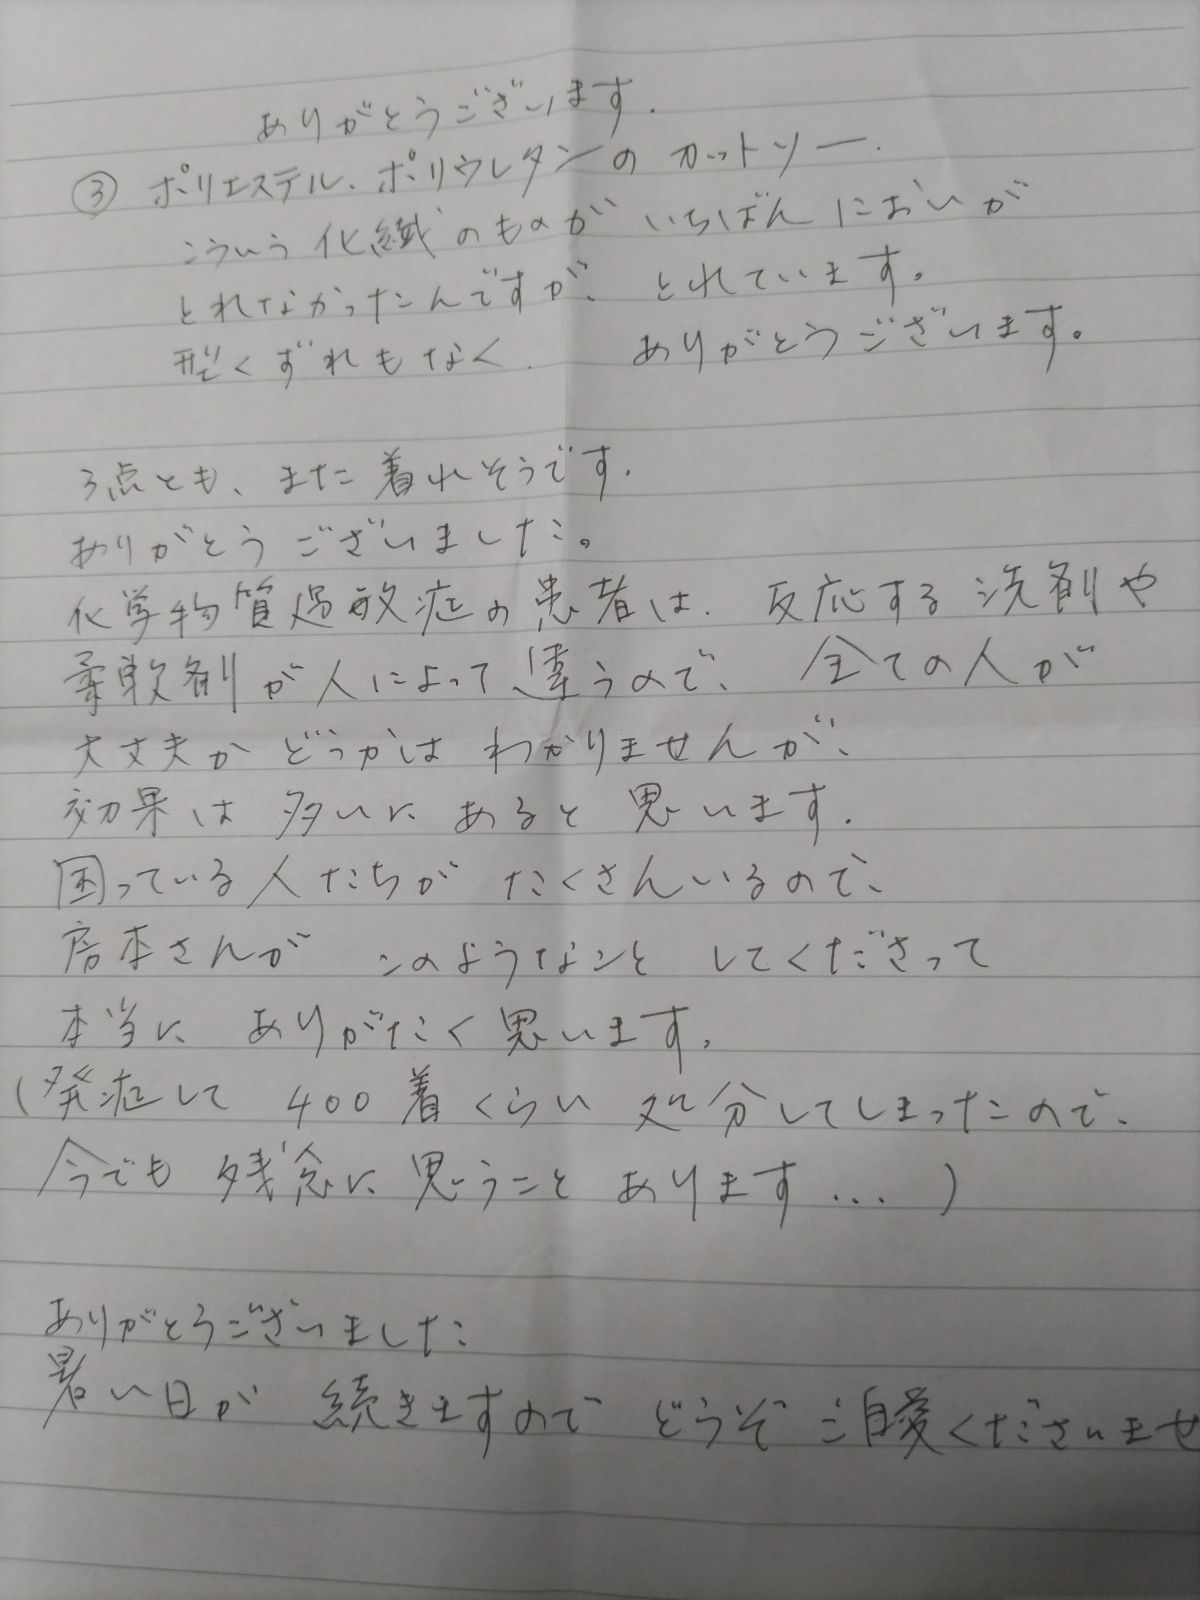 ありがとうございます.
③ ポリエステル、ポリウレタンの カットソー.
こういう 化繊のものが いちばん においが
とれなかったんですが、 とれています。
型くずれもなく. ありがとうございます。
3点とも、また着れそうです.
ありがとうございました。
化学物質過敏症の患者は、反応する洗剤や
柔軟剤が人によって違うので、 全ての人が
大丈夫か どうかは わかりませんが、
効果は 多いに あると 思います.
困っている人たちが たくさんいるので、
房本さんが このようなこと してくださって
本当に ありがたく思います。
(発症して 400着くらい 処分してしまったので、
今でも 残念に思うこと あります...)
ありがとうございました
暑い日が 続きますので どうぞ ご自愛くださいませ